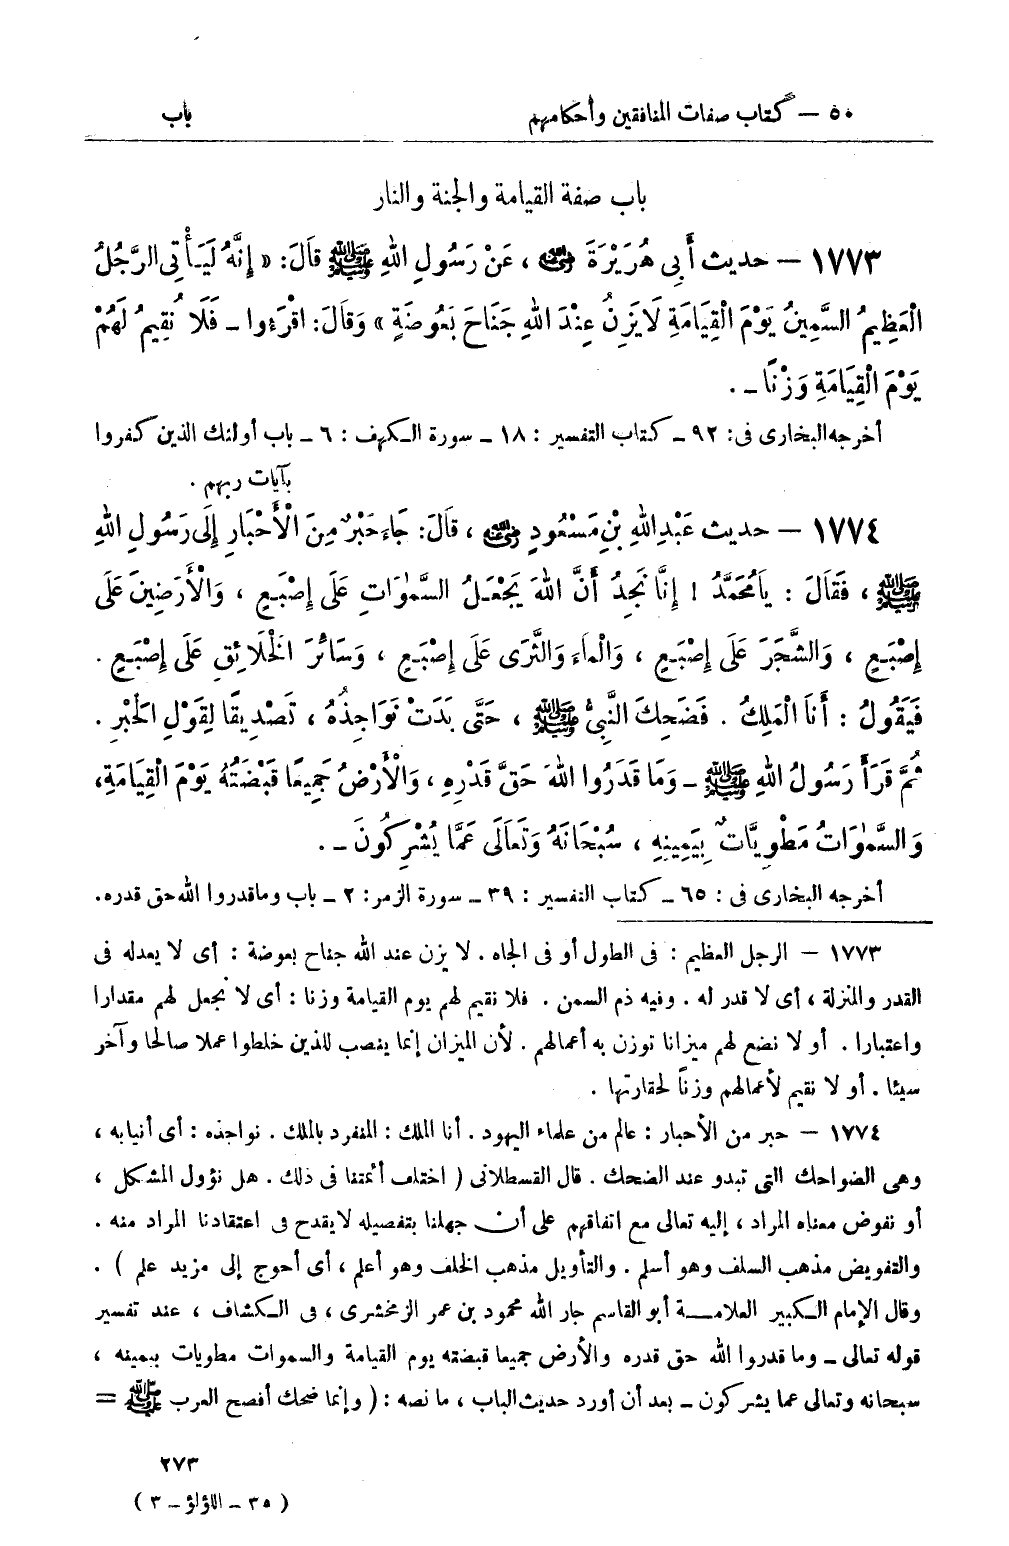 ٥٠ – كتاب صفات المنافقين وأحكامهم باب
باب صفة القيامة والجنة والنار
١٧٧٣ – حديث أَبِي هُرَيْرَةَ رضي الله عنه ، عَنْ رَسُولِ اللهِ ﷺ قَالَ: « إِنَّهُ لَيَأْتِي الرَّجُلُ
الْعَظِيمُ السَّمِينُ يَوْمَ الْقِيَامَةِ لَا يَزِنُ عِنْدَ اللهِ جَنَاحَ بَعُوضَةٍ » وَقَالَ: اقْرَءُوا – فَلَا نُقِيمُ لَهُمْ
يَوْمَ الْقِيَامَةِ وَزْنًا – .
أخرجه البخارى فى: ٩٢ – كتاب التفسير : ١٨ – سورة الكهف : ٦ – باب أولئك الذين كفروا
بآيات ربهم .
١٧٧٤ – حديث عَبْدِ اللهِ بْنِ مَسْعُودٍ رضي الله عنه ، قَالَ: جَاءَ حَبْرٌ مِنَ الْأَحْبَارِ إِلَى رَسُولِ اللهِ
ﷺ ، فَقَالَ : يَا مُحَمَّدُ ! إِنَّا نَجِدُ أَنَّ اللهَ يَجْعَلُ السَّمٰوَاتِ عَلَى إِصْبَعٍ ، وَالْأَرَضِينَ عَلَى
إِصْبَعٍ ، وَالشَّجَرَ عَلَى إِصْبَعٍ ، وَالْمَاءَ وَالثَّرَى عَلَى إِصْبَعٍ ، وَسَائِرَ الْخَلَائِقِ عَلَى إِصْبَعٍ .
فَيَقُولُ : أَنَا الْمَلِكُ . فَضَحِكَ النَّبِيُّ ﷺ ، حَتَّى بَدَتْ نَوَاجِذُهُ ، تَصْدِيقًا لِقَوْلِ الْحَبْرِ .
ثُمَّ قَرَأَ رَسُولُ اللهِ ﷺ – وَمَا قَدَرُوا اللهَ حَقَّ قَدْرِهِ ، وَالْأَرْضُ جَمِيعًا قَبْضَتُهُ يَوْمَ الْقِيَامَةِ،
وَالسَّمٰوَاتُ مَطْوِيَّاتٌ بِيَمِينِهِ ، سُبْحَانَهُ وَتَعَالَى عَمَّا يُشْرِكُونَ – .
أخرجه البخارى فى : ٦٥ – كتاب التفسير : ٣٩ – سورة الزمر: ٢ – باب وما قدروا الله حق قدره.
١٧٧٣ – الرجل العظيم : فى الطول أو فى الجاه . لا يزن عند الله جناح بعوضة : أى لا يعدله فى
القدر والمنزلة ، أى لا قدر له . وفيه ذم السمن . فلا نقيم لهم يوم القيامة وزنا : أى لا نجعل لهم مقدارا
واعتبارا . أو لا نضع لهم ميزانا نوزن به أعمالهم . لأن الميزان إنما ينصب للذين خلطوا عملا صالحا وآخر
سيئا . أو لا نقيم لأعمالهم وزناً لحقارتها .
١٧٧٤ – حبر من الأحبار : عالم من علماء اليهود . أنا الملك : المنفرد بالملك . نواجذه : أى أنيابه ،
وهى الضواحك التى تبدو عند الضحك . قال القسطلانى ( اختلف أئمتنا فى ذلك . هل نؤول المشكل ،
أو نفوض معناه المراد ، إليه تعالى مع اتفاقهم على أن جهلنا بتفصيله لا يقدح فى اعتقادنا المراد منه .
والتفويض مذهب السلف وهو أسلم . والتأويل مذهب الخلف وهو أعلم ، أى أحوج إلى مزيد علم ) .
وقال الإمام الكبير العلامة أبو القاسم جار الله محمود بن عمر الزمخشرى ، فى الكشاف ، عند تفسير
قوله تعالى – وما قدروا الله حق قدره والأرض جميعا قبضته يوم القيامة والسموات مطويات بيمينه ،
سبحانه وتعالى عما يشركون – بعد أن أورد حديث الباب ، ما نصه : ( وإنما ضحك أفصح العرب ﷺ =
٢٧٣
( ٣٥ – اللؤلؤ – ٣ )